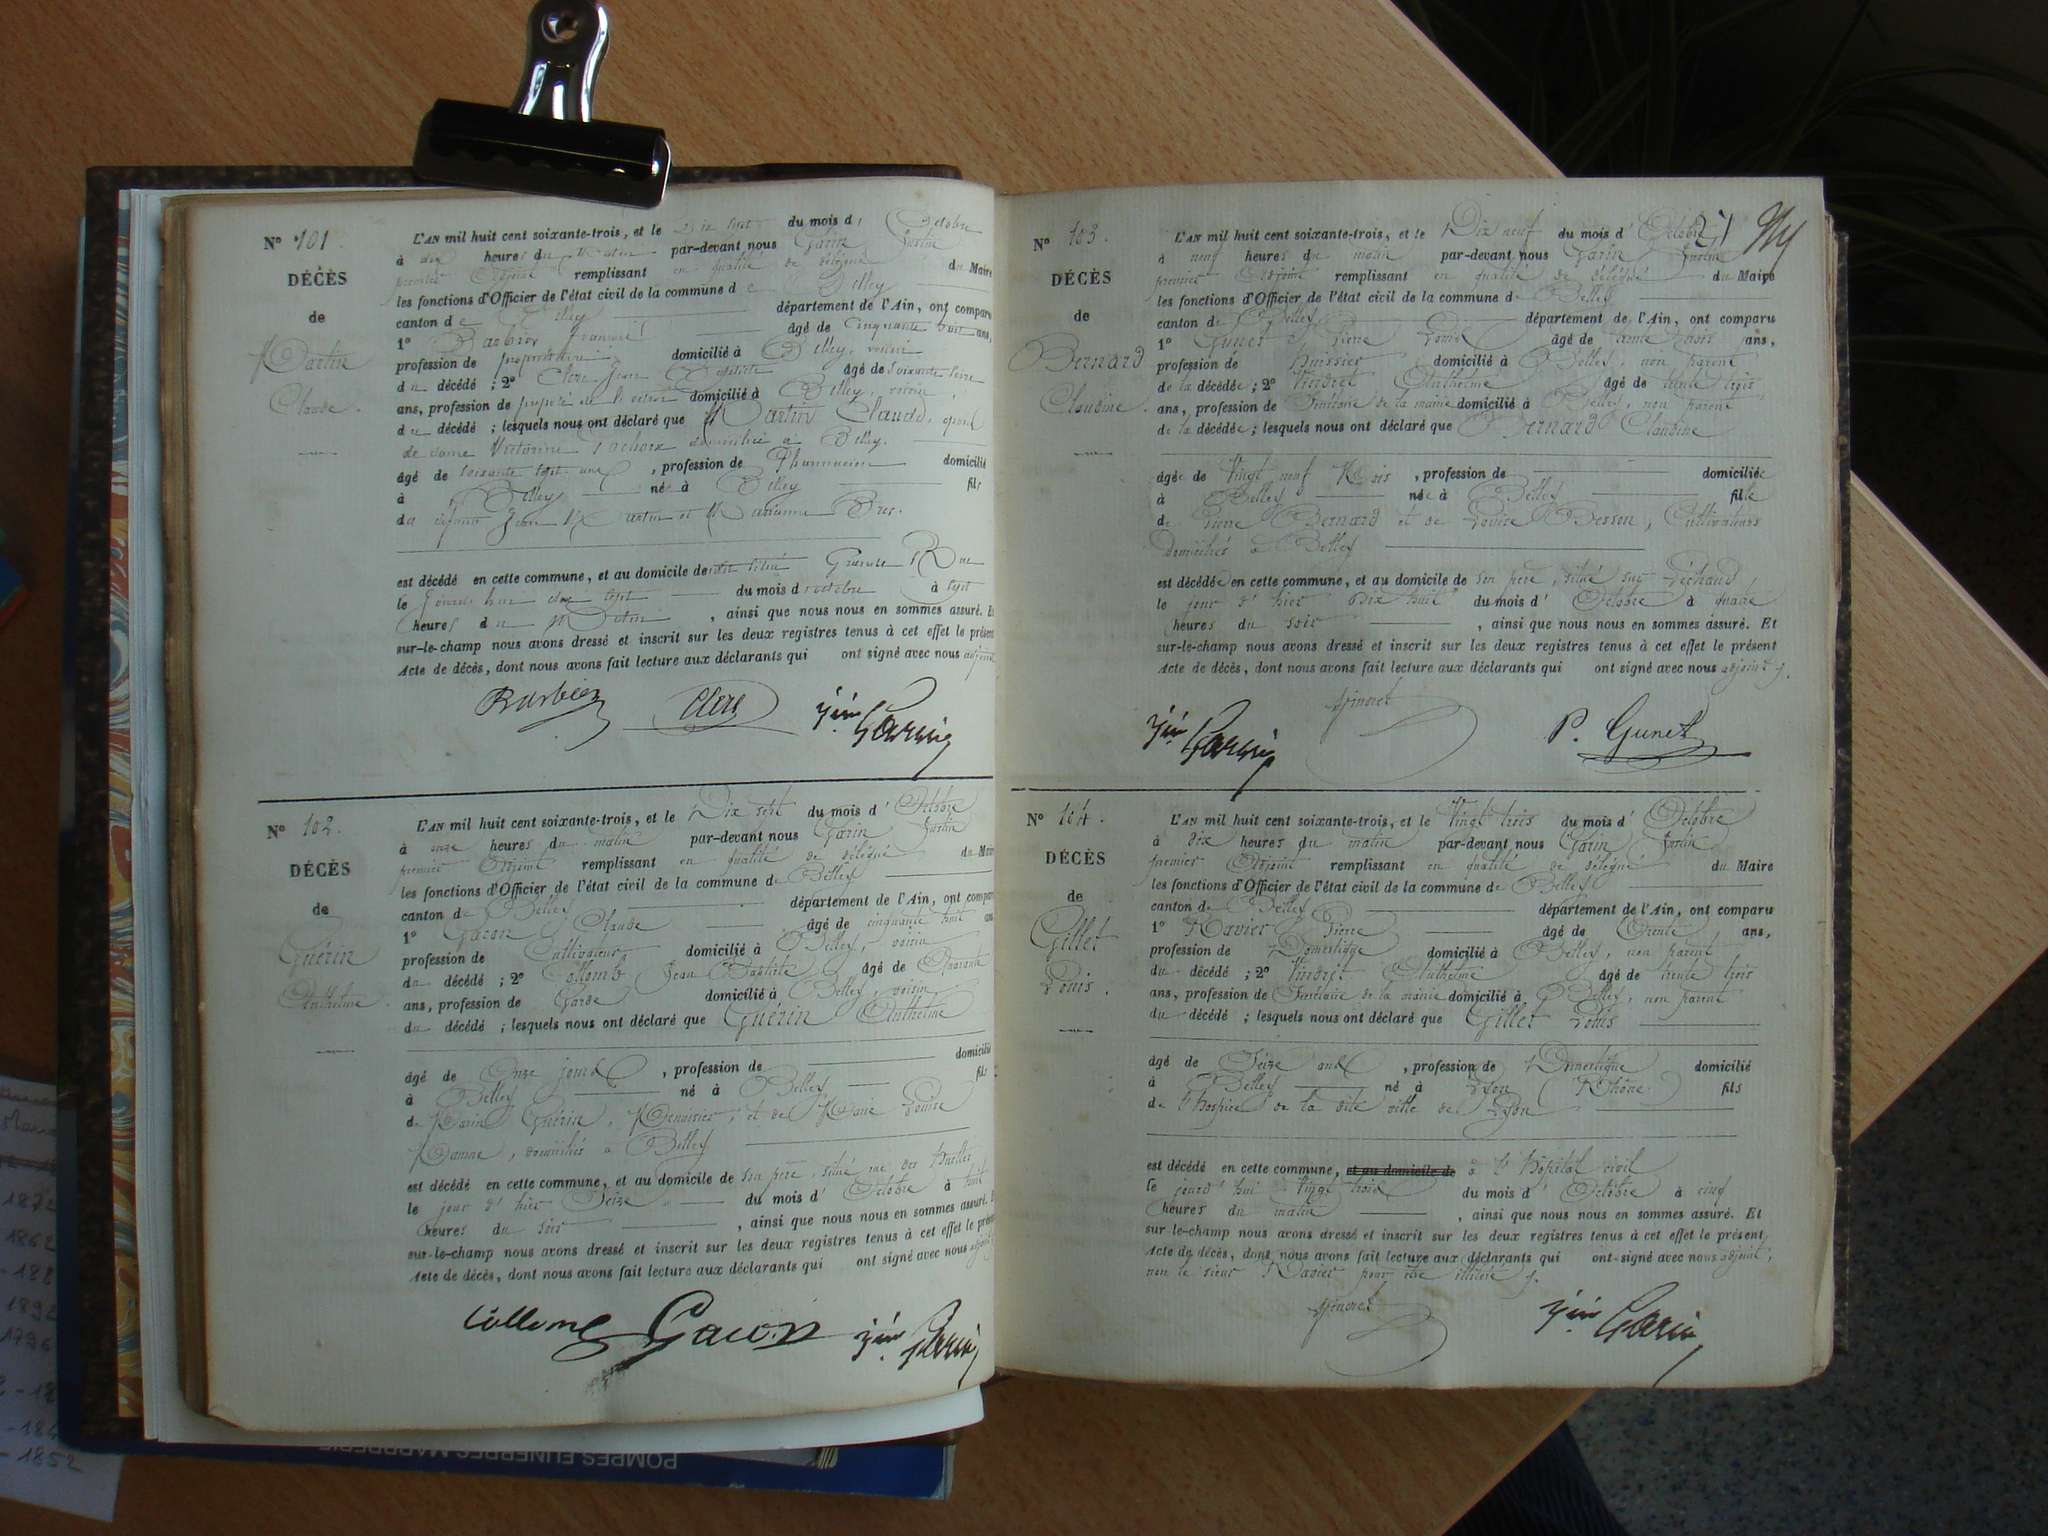 N° 101.
DÉCÈS
de
Martin
Claude.
L'AN mil huit cent soixante-trois, et le Dix sept du mois d'Octobre
à dix heures du Matin par-devant nous Garin Justin
premier Adjoint remplissant en qualité de délégué du Maire
les fonctions d'Officier de l'état civil de la commune de Belley
canton de Belley département de l'Ain, ont comparu
1° Barbier François âgé de Cinquante huit ans,
profession de propriétaire domicilié à Belley, voisin
du décédé ; 2° Clerc Jean Baptiste âgé de soixante
ans, profession de préposé de l'octroi domicilié à Belley, voisin,
du décédé ; lesquels nous ont déclaré que Martin Claude, époux
de dame Victorine domiciliée à Belley.
âgé de soixante sept ans, profession de Pharmacien domicilié
à Belley né à Belley fils
de défunt Jean Martin et Marianne
est décédé en cette commune, et au domicile de Grande Rue
le jourd'hui dix sept du mois d'octobre à sept
heures du Matin, ainsi que nous nous en sommes assuré. Et
sur-le-champ nous avons dressé et inscrit sur les deux registres tenus à cet effet le présent
Acte de décès, dont nous avons fait lecture aux déclarants qui ont signé avec nous adjoint
Barbier Clerc Jin Garin
N° 102.
DÉCÈS
de
Guérin
Anthelme.
L'AN mil huit cent soixante-trois, et le Dix sept du mois d'Octobre
à onze heures du matin par-devant nous Garin Justin
premier Adjoint remplissant en qualité de délégué du Maire
les fonctions d'Officier de l'état civil de la commune de Belley
canton de Belley département de l'Ain, ont comparu
1° Gacon Claude âgé de cinquante huit ans
profession de Cultivateur domicilié à Belley, voisin
du décédé ; 2° Collomb Jean Baptiste âgé de Quarante
ans, profession de Garde domicilié à Belley, voisin
du décédé ; lesquels nous ont déclaré que Guérin Anthelme
âgé de Onze jours, profession de domicilié
à Belley né à Belley fils
de Marin Guérin, Menuisier, et de Marie Louise
domiciliés à Belley
est décédé en cette commune, et au domicile de son père, situé rue des
le jour d'hier Seize du mois d'Octobre à huit
heures du soir, ainsi que nous nous en sommes assuré. Et
sur-le-champ nous avons dressé et inscrit sur les deux registres tenus à cet effet le présent
Acte de décès, dont nous avons fait lecture aux déclarants qui ont signé avec nous adjoint
Collomb Gacon Jin Garin
21
N° 103.
DÉCÈS
de
Bernard
Claudine.
L'AN mil huit cent soixante-trois, et le Dix neuf du mois d'Octobre
à neuf heures du matin par-devant nous Garin Justin
premier Adjoint remplissant en qualité de délégué du Maire
les fonctions d'Officier de l'état civil de la commune de Belley
canton de Belley département de l'Ain, ont comparu
1° Gunet Pierre Louis âgé de trente trois ans,
profession de huissier domicilié à Belley, non parent
de la décédée ; 2° Vindret Anthelme âgé de trente trois
ans, profession de Secrétaire de la mairie domicilié à Belley, non parent
de la décédée ; lesquels nous ont déclaré que Bernard Claudine
âgée de Vingt neuf Mois, profession de domiciliée
à Belley née à Belley fille
de Pierre Bernard et de Louise Besson, Cultivateurs
domiciliés à Belley
est décédée en cette commune, et au domicile de son père, situé
le jour d'hier Dix huit du mois d'Octobre à quatre
heures du soir, ainsi que nous nous en sommes assuré. Et
sur-le-champ nous avons dressé et inscrit sur les deux registres tenus à cet effet le présent
Acte de décès, dont nous avons fait lecture aux déclarants qui ont signé avec nous adjoint.
Jin Garin P. Gunet
N° 104.
DÉCÈS
de
Gillet
Louis.
L'AN mil huit cent soixante-trois, et le Vingt trois du mois d'Octobre
à dix heures du matin par-devant nous Garin Justin
premier Adjoint remplissant en qualité de délégué du Maire
les fonctions d'Officier de l'état civil de la commune de Belley
canton de Belley département de l'Ain, ont comparu
1° Ravier Pierre âgé de Trente ans,
profession de Domestique domicilié à Belley, non parent
du décédé ; 2° Vindret Anthelme âgé de trente trois
ans, profession de Secrétaire de la mairie domicilié à Belley, non parent
du décédé ; lesquels nous ont déclaré que Gillet Louis
âgé de Seize ans, profession de Domestique domicilié
à Belley né à Lyon (Rhône) fils
de l'hospice de la dite ville de Lyon
est décédé en cette commune, et au domicile de à l'hôpital civil
le jourd'hui Vingt trois du mois d'Octobre à cinq
heures du matin, ainsi que nous nous en sommes assuré. Et
sur-le-champ nous avons dressé et inscrit sur les deux registres tenus à cet effet le présent
Acte de décès, dont nous avons fait lecture aux déclarants qui ont signé avec nous adjoint,
non le sieur Ravier pour être illitéré.
Jin Garin
1872
1862
1892
1796
- 1852
POMPES FUNEBRES MARBRERIE